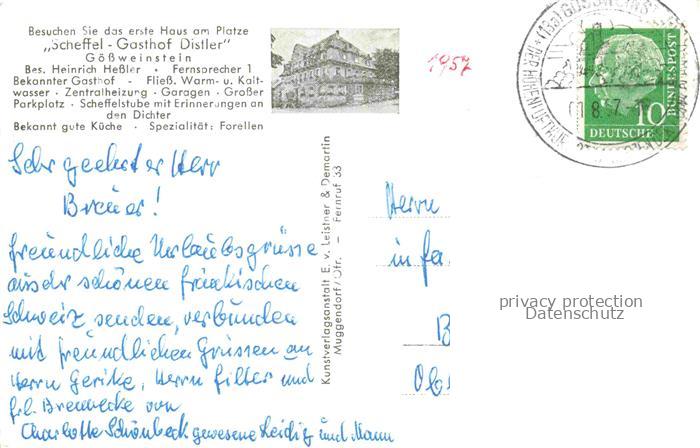 Besuchen Sie das erste Haus am Platze
„Scheffel - Gasthof Distler"
Gößweinstein
Bes. Heinrich Heßler - Fernsprecher 1
Bekannter Gasthof - Fließ. Warm- u. Kalt-
wasser - Zentralheizung - Garagen - Großer
Parkplatz - Scheffelstube mit Erinnerungen an
den Dichter
Bekannt gute Küche - Spezialität: Forellen
1957
DEUTSCHE
BUNDESPOST
10
Sehr geehrter Herr
Breuer!
freundliche Urlaubsgrüsse
aus der schönen fränkischen
Schweiz senden, verbunden
mit freundlichen Grüssen an
Herrn Gerike, Herrn Filter und
Frl. Brennecke von
Charlotte Schönbeck gewesene Leidig und Mann
Kunstverlagsanstalt E. v. Leistner & Demartin
Muggendorf/Ofr. - Fernruf 33
Herrn
in fa.
B
Obs
privacy protection
Datenschutz